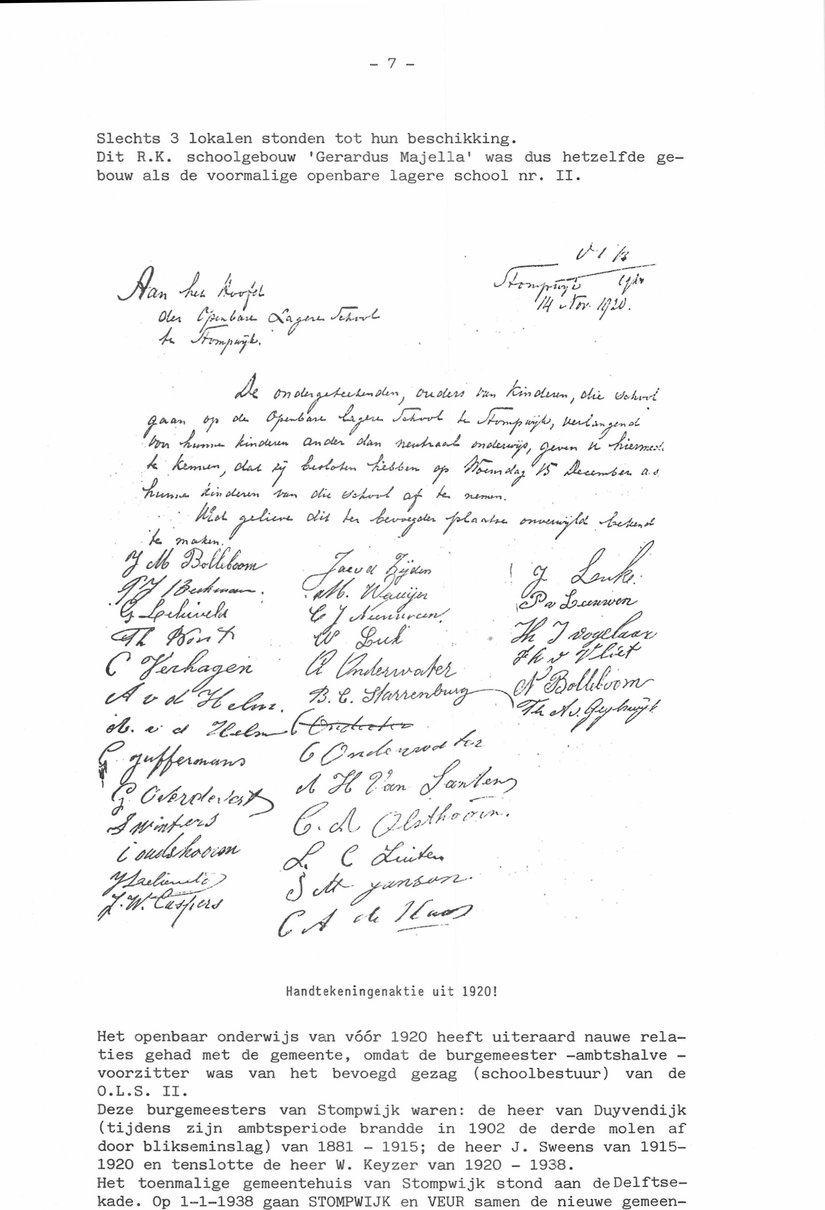 - 7 -
Slechts 3 lokalen stonden tot hun beschikking.
Dit R.K. schoolgebouw 'Gerardus Majella' was dus hetzelfde ge-
bouw als de voormalige openbare lagere school nr. II.
Stompwijk
14 Nov. 1920.
Aan het Hoofd
der Openbare Lagere School
te Stompwijk.
De ondergeteekenden, ouders van kinderen, die school
gaan op de Openbare Lagere School te Stompwijk, verlangend
voor hunne kinderen ander dan neutraal onderwijs, geven u hiermede
te kennen, dat zij besloten hebben op Woensdag 15 December a.s
hunne kinderen van die school af te nemen.
Men gelieve dit ter bevoegder plaatse onverwijld bekend
te maken.
J M Bolleboom
Beekman.
C Verhagen
A v d Helm.
A. v. d Helm
G Juffermans
G Overdevest
S Winters
C oudshoorn
J. W. Caspers
W Luk
A Onderwater
B. C. Starrenburg
C Onderwater
A H Van Santen
C. A Olsthoorn.
L. C Luiten
S M Janson.
C A de Haas
P v Leeuwen
Th J Vogelaar
v Vliet
N Bolleboom
Handtekeningenaktie uit 1920!
Het openbaar onderwijs van vóór 1920 heeft uiteraard nauwe rela-
ties gehad met de gemeente, omdat de burgemeester -ambtshalve -
voorzitter was van het bevoegd gezag (schoolbestuur) van de
O.L.S. II.
Deze burgemeesters van Stompwijk waren: de heer van Duyvendijk
(tijdens zijn ambtsperiode brandde in 1902 de derde molen af
door blikseminslag) van 1881 - 1915; de heer J. Sweens van 1915-
1920 en tenslotte de heer W. Keyzer van 1920 - 1938.
Het toenmalige gemeentehuis van Stompwijk stond aan de Delftse-
kade. Op 1-1-1938 gaan STOMPWIJK en VEUR samen de nieuwe gemeen-